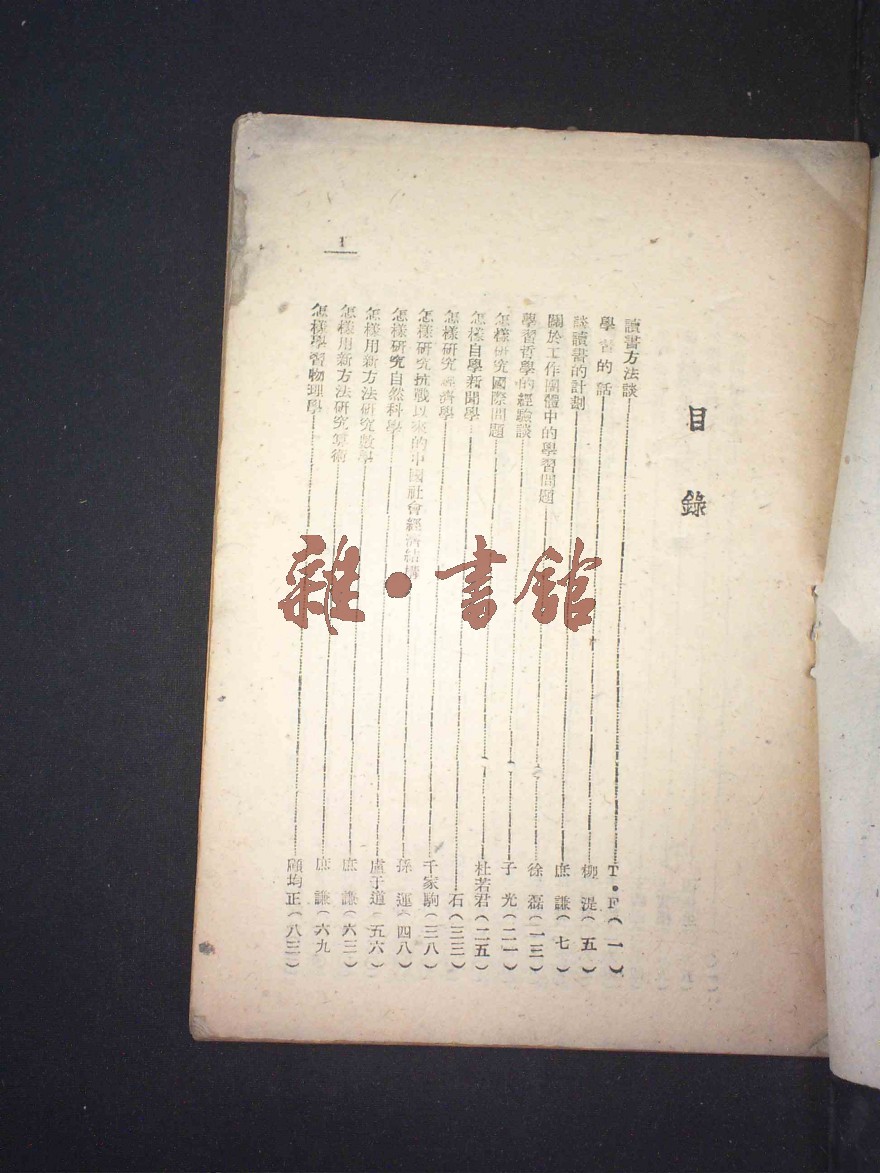 目錄
讀書方法談……T·F(一)
學習的話……柳湜(五)
談讀書的計劃……庶謙(七)
關於工作團體中的學習問題……徐磊(一三)
學習哲學的經驗談……子光(二一)
怎樣研究國際問題……杜若君(二五)
怎樣自學新聞學……石(三三)
怎樣研究經濟學……千家駒(三八)
怎樣研究抗戰以來的中國社會經濟結構……孫運(四八)
怎樣研究自然科學……盧于道(五六)
怎樣用新方法研究數學……庶謙(六三)
怎樣用新方法研究算術……庶謙(六九
怎樣學習物理學……顧均正(八三)
1
雜·書館